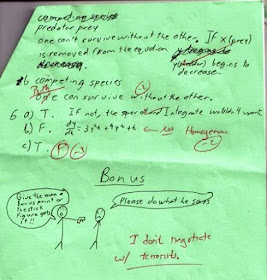 competing species
predator prey
one can't survive without the other. If x (prey)
is removed from the equation begins to
decrease.
b competing species
Both
can survive without the other.
6 a) T. If not, the and Integrate wouldn't work
b) F. dy/dt = 3y²t + y²t ← Not Homogenous -2
c) T. F -3
Bonus
Give the man a bonus point or the stick figure gets it!!
Please do what he says
I don't negotiate
w/ terrorists.